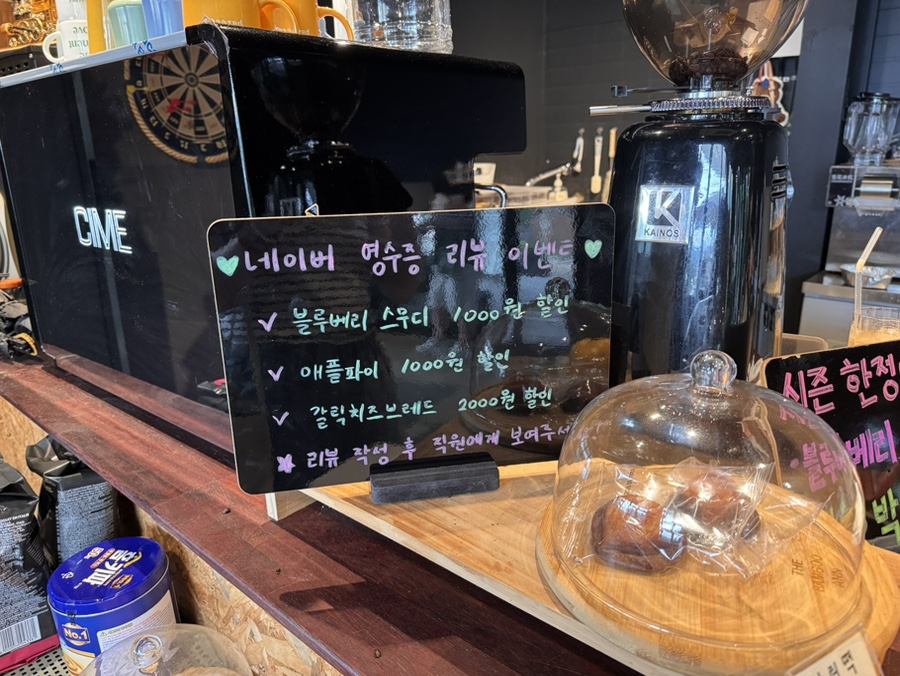 CIME
K
KAINOS
네이버 영수증 리뷰 이벤트
블루베리 스무디 1000원 할인
애플파이 1000원 할인
갈릭치즈브레드 2000원 할인
리뷰 작성 후 직원에게 보여주세
시즌 한정
블루베리
No.1
THE